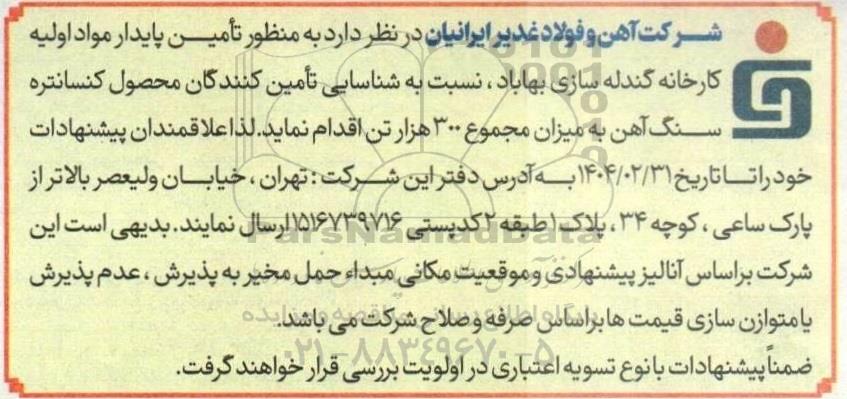 شرکت آهن و فولاد غدیر ایرانیان در نظر دارد به منظور تأمین پایدار مواد اولیه
کارخانه گندله سازی بهاباد ، نسبت به شناسایی تأمین کنندگان محصول کنسانتره
سنگ آهن به میزان مجموع ۳۰۰ هزار تن اقدام نماید. لذا علاقمندان پیشنهادات
خود را تا تاریخ ۱۴۰۴/۰۲/۳۱ به آدرس دفتر این شرکت : تهران ، خیابان ولیعصر بالاتر از
پارک ساعی ، کوچه ۳۴ ، پلاک ۱ طبقه ۲ کدپستی ۱۵۱۶۷۳۹۷۱۶ ارسال نمایند. بدیهی است این
شرکت براساس آنالیز پیشنهادی و موقعیت مکانی مبداء حمل مخیر به پذیرش ، عدم پذیرش
یا متوازن سازی قیمت ها براساس صرفه و صلاح شرکت می باشد.
ضمناً پیشنهادات با نوع تسویه اعتباری در اولویت بررسی قرار خواهند گرفت.
ParsNamadData
پایگاه اطلاع رسانی مناقصه و مزایده
۰۲۱-۸۸۳۴۹۶۷۰-۵